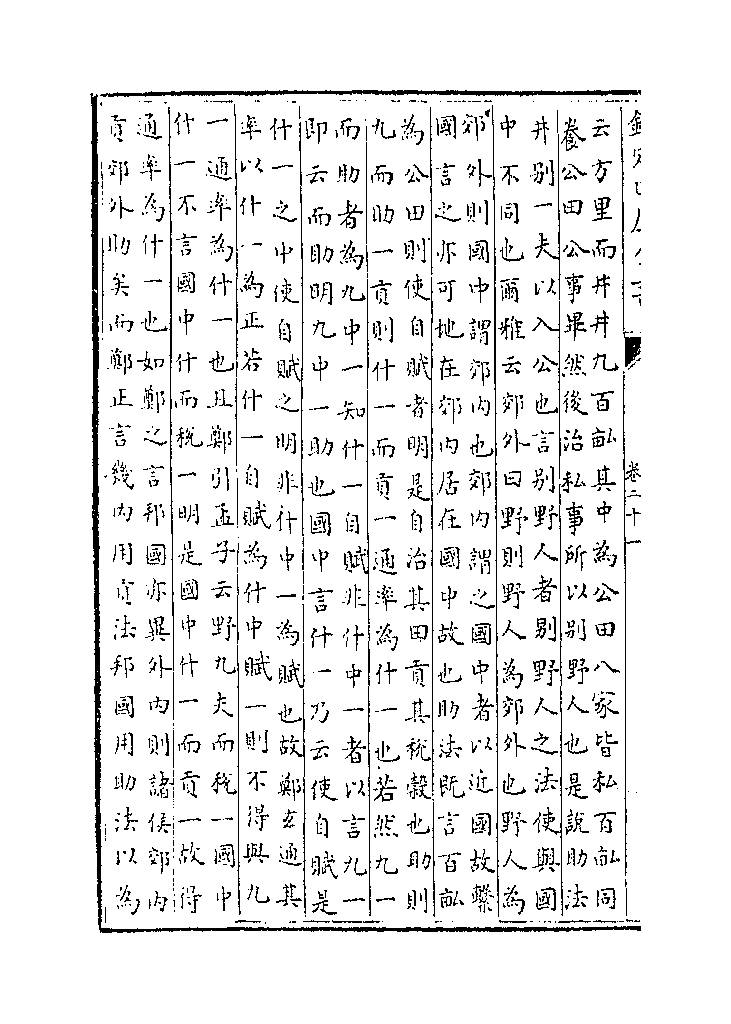 卷二十一
云方里而井井九百畝其中為公田八家皆私百畝同
養公田公事畢然後治私事所以別野人也是說助法
井別一夫以入公也言別野人者別野人之法使與國
中不同也爾雅云郊外曰野則野人為郊外也野人為
郊外則國中謂郊內也郊內謂之國中者以近國故繫
國言之亦可地在郊內居在國中故也助法既言百畝
為公田則使自賦者明是自治其田貢其稅穀也助則
九而助一貢則什一而貢一通率為什一也若然九一
而助者為九中一知什一自賦非什中一者以言九一
即云而助明九中一助也國中言什一乃云使自賦是
什一之中使自賦之明非什中一為賦也故鄭玄通其
率以什一為正若什一自賦為什中賦一則不得與九
一通率為什一也且鄭引孟子云野九夫而稅一國中
什一不言國中什而稅一明是國中什一而貢一故得
通率為什一也如鄭之言邦國亦異外內則諸侯郊內
貢郊外助矣而鄭正言幾內用貢法邦國用助法以為